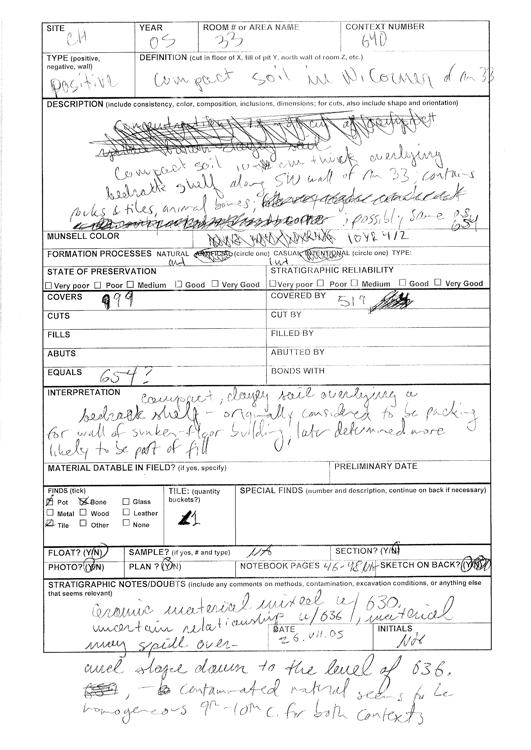 SITE YEAR ROOM # or AREA NAME CONTEXT NUMBER
CH 05 33 640
TYPE (positive, negative, wall) DEFINITION (cut in floor of X, fill of pit Y, north wall of room Z, etc.)
positive Compact soil in N. Corner of rm 33
DESCRIPTION (include consistency, color, composition, inclusions, dimensions; for cuts, also include shape and orientation)
Compact soil cm thick overlying
bedrock shelf along SW wall of rm 33; contains
rocks & tiles, animal bones;
; possibly same as 654
MUNSELL COLOR 10YR 4/2
FORMATION PROCESSES NATURAL ARTIFICIAL (circle one) CASUAL INTENTIONAL (circle one) TYPE:
STATE OF PRESERVATION STRATIGRAPHIC RELIABILITY
Very poor Poor Medium Good Very Good Very poor Poor Medium Good Very Good
COVERS 999 COVERED BY 517
CUTS CUT BY
FILLS FILLED BY
ABUTS ABUTTED BY
EQUALS 654? BONDS WITH
INTERPRETATION
compact, clayey soil overlying a
bedrock shelf - originally considered to be packing
for wall of sunken-floor building, later determined more
likely to be part of fill
MATERIAL DATABLE IN FIELD? (if yes, specify) PRELIMINARY DATE
FINDS (tick) TILE: (quantity buckets?) SPECIAL FINDS (number and description, continue on back if necessary)
Pot Bone Glass
Metal Wood Leather 1
Tile Other None
FLOAT? (Y/N) SAMPLE? (if yes, # and type) N/A SECTION? (Y/N)
PHOTO? (Y/N) PLAN? (Y/N) NOTEBOOK PAGES 46-48 SKETCH ON BACK? (Y/N)
STRATIGRAPHIC NOTES/DOUBTS (include any comments on methods, contamination, excavation conditions, or anything else that seems relevant)
Ceramic material mixed w/ 630.
uncertain relationship w/ 636, material
may spill over-
DATE 26.VII.05 INITIALS
and slope down to the level of 636.
contaminated natural seems to be
homogeneous 9th-10th c. for both contexts